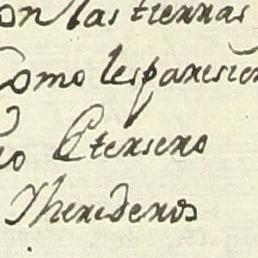 on las tierras
Como les parecien
io Eterseno
y herederos